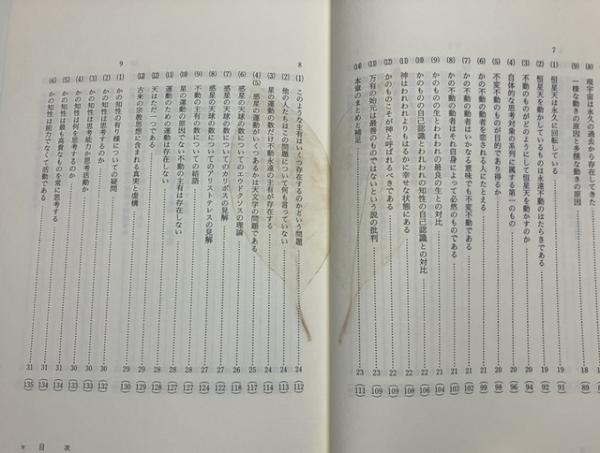 (8) 現宇宙は永久の過去から存在してきた
(9) 一様な動きの原因と多様な動きの原因
7
(1) 恒星天は永久に回転している
(2) 恒星天を動かしているものは永遠不動のはたらきである
(3) 不動のものがどのようにして恒星天を動かすのか
(4) 自体的な思考対象の系列に属する第一のもの
(5) 不変不動のものが目的であり得るか
(6) かの不動の動者を恋される人にたとえる
(7) かの不動の動者はいかなる意味でも不変不動である
(8) かの不動の動者はそれ自身によって必然のものである
(9) かのものの生とわれわれの最良の生との対比
(10) かのものの自己認識とわれわれの知性の自己認識との対比
(11) 神はわれわれよりもはるかに幸せな状態にある
(12) かのものこそが神と呼ばれるべきである
(13) 万有の始元は最善のものではないという説の批判
(14) 本章のまとめと補足 23 (111)
8
(1) このような主有はいくつ存在するのかという問題 24 (112)
(2) 他の人たちはこの問題について何も言っていない
(3) 星の運動の数だけ不動永遠の主有が存在する
(4)(5) 惑星の運動がいくつあるかは天文学の問題である
(6) 惑星の天球の数についてのエウドクソスの理論
(7) 惑星の天球の数についてのカリポスの見解
(8) 惑星の天球の数についてのアリストテレスの見解
(9) 不動の主有の数についての結語
(10) 星の運動の原因でない不動の主有は存在しない
(11) 運動のための運動は存在しない
(12) 天はただ一つである
(13) 古来の宗教思想に含まれる真実と虚構
9
(1) かの知性の有り様についての疑問
(2) かの知性は思考能力か思考活動か
(3)(4) かの知性は何を思考するのか
(5) かの知性は最も高貴なものを常に思考する
(6) かの知性は能力でなくて活動である 31 (135)
目 次